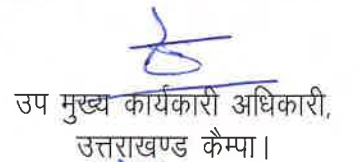 उप मुख्य कार्यकारी अधिकारी,
उत्तराखण्ड कैम्पा।